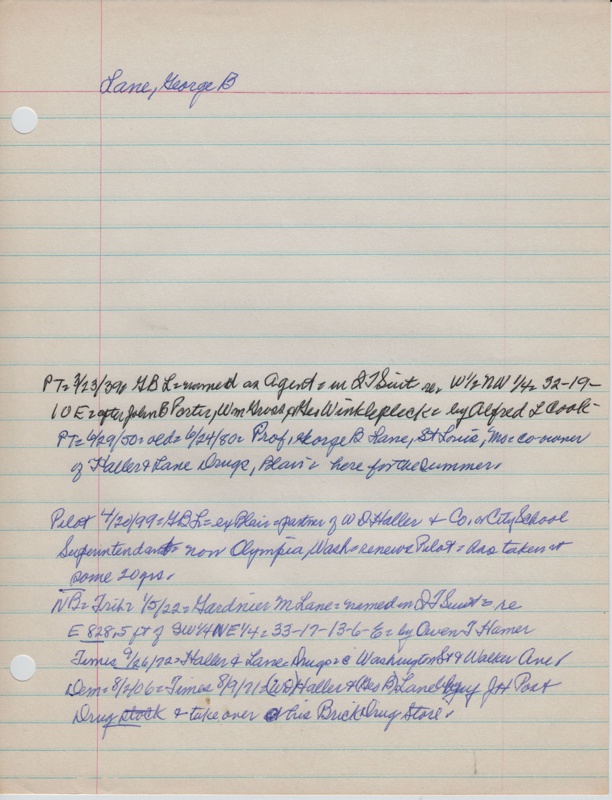 Lane, George B
PT= 3/23/39= G B L= named as Agent= in Q T Suit re, W 1/2 NW 1/4= 32-19-
10 E= after John E Porter, Wm Gross, & Geo Winklepleck= by Alfred L Cook-
PT= 6/29/50= old= 6/24/80= Prof, George B Lane, St Louis, Mo= co-owner
of Haller & Lane Drugs, Blair= here for the summer.
Pilot 4/20/99= G B L= ex Blair= partner of W D Haller & Co, or City School
Superintendant= now Olympia, Wash= renews Pilot= has taken it
some 20 yrs.
NB= Trib: 1/5/22= Gardnier M Lane= named in Q T Suit= re
E 828.5 ft of SW 1/4 NE 1/4= 33-17-13-6-E= by Owen T Hamer
Times 9/26/72= Haller & Lane= Drugs= @ Washington St & Walker Ave,
Dem= 8/2/06= Times 8/9/71 (WD) Haller & (Geo B) Lane buy J H Post
Drug stock & take over his Brick Drug Store.